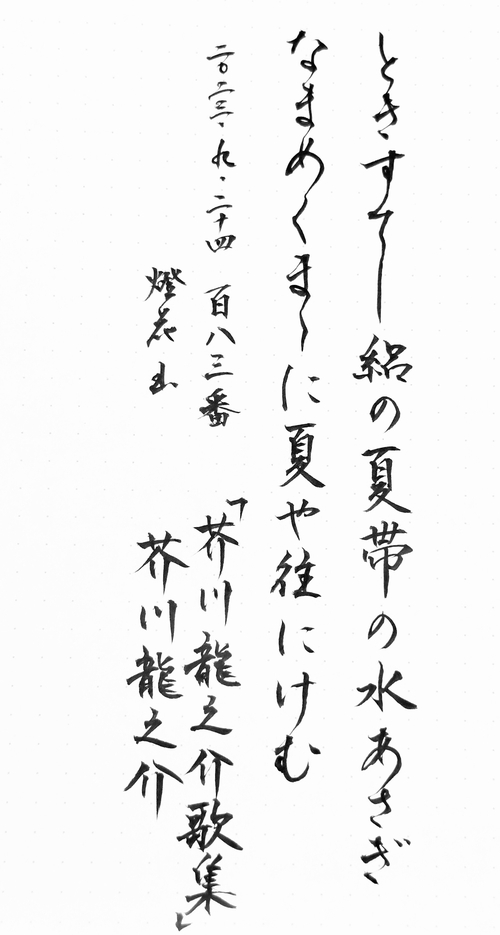 ときすてし絽の夏帯の水あさぎ
なまめくまゝに夏や往にけむ
二〇二三・九・二十四 百八三番 「芥川龍之介歌集」
燈花山 芥川龍之介